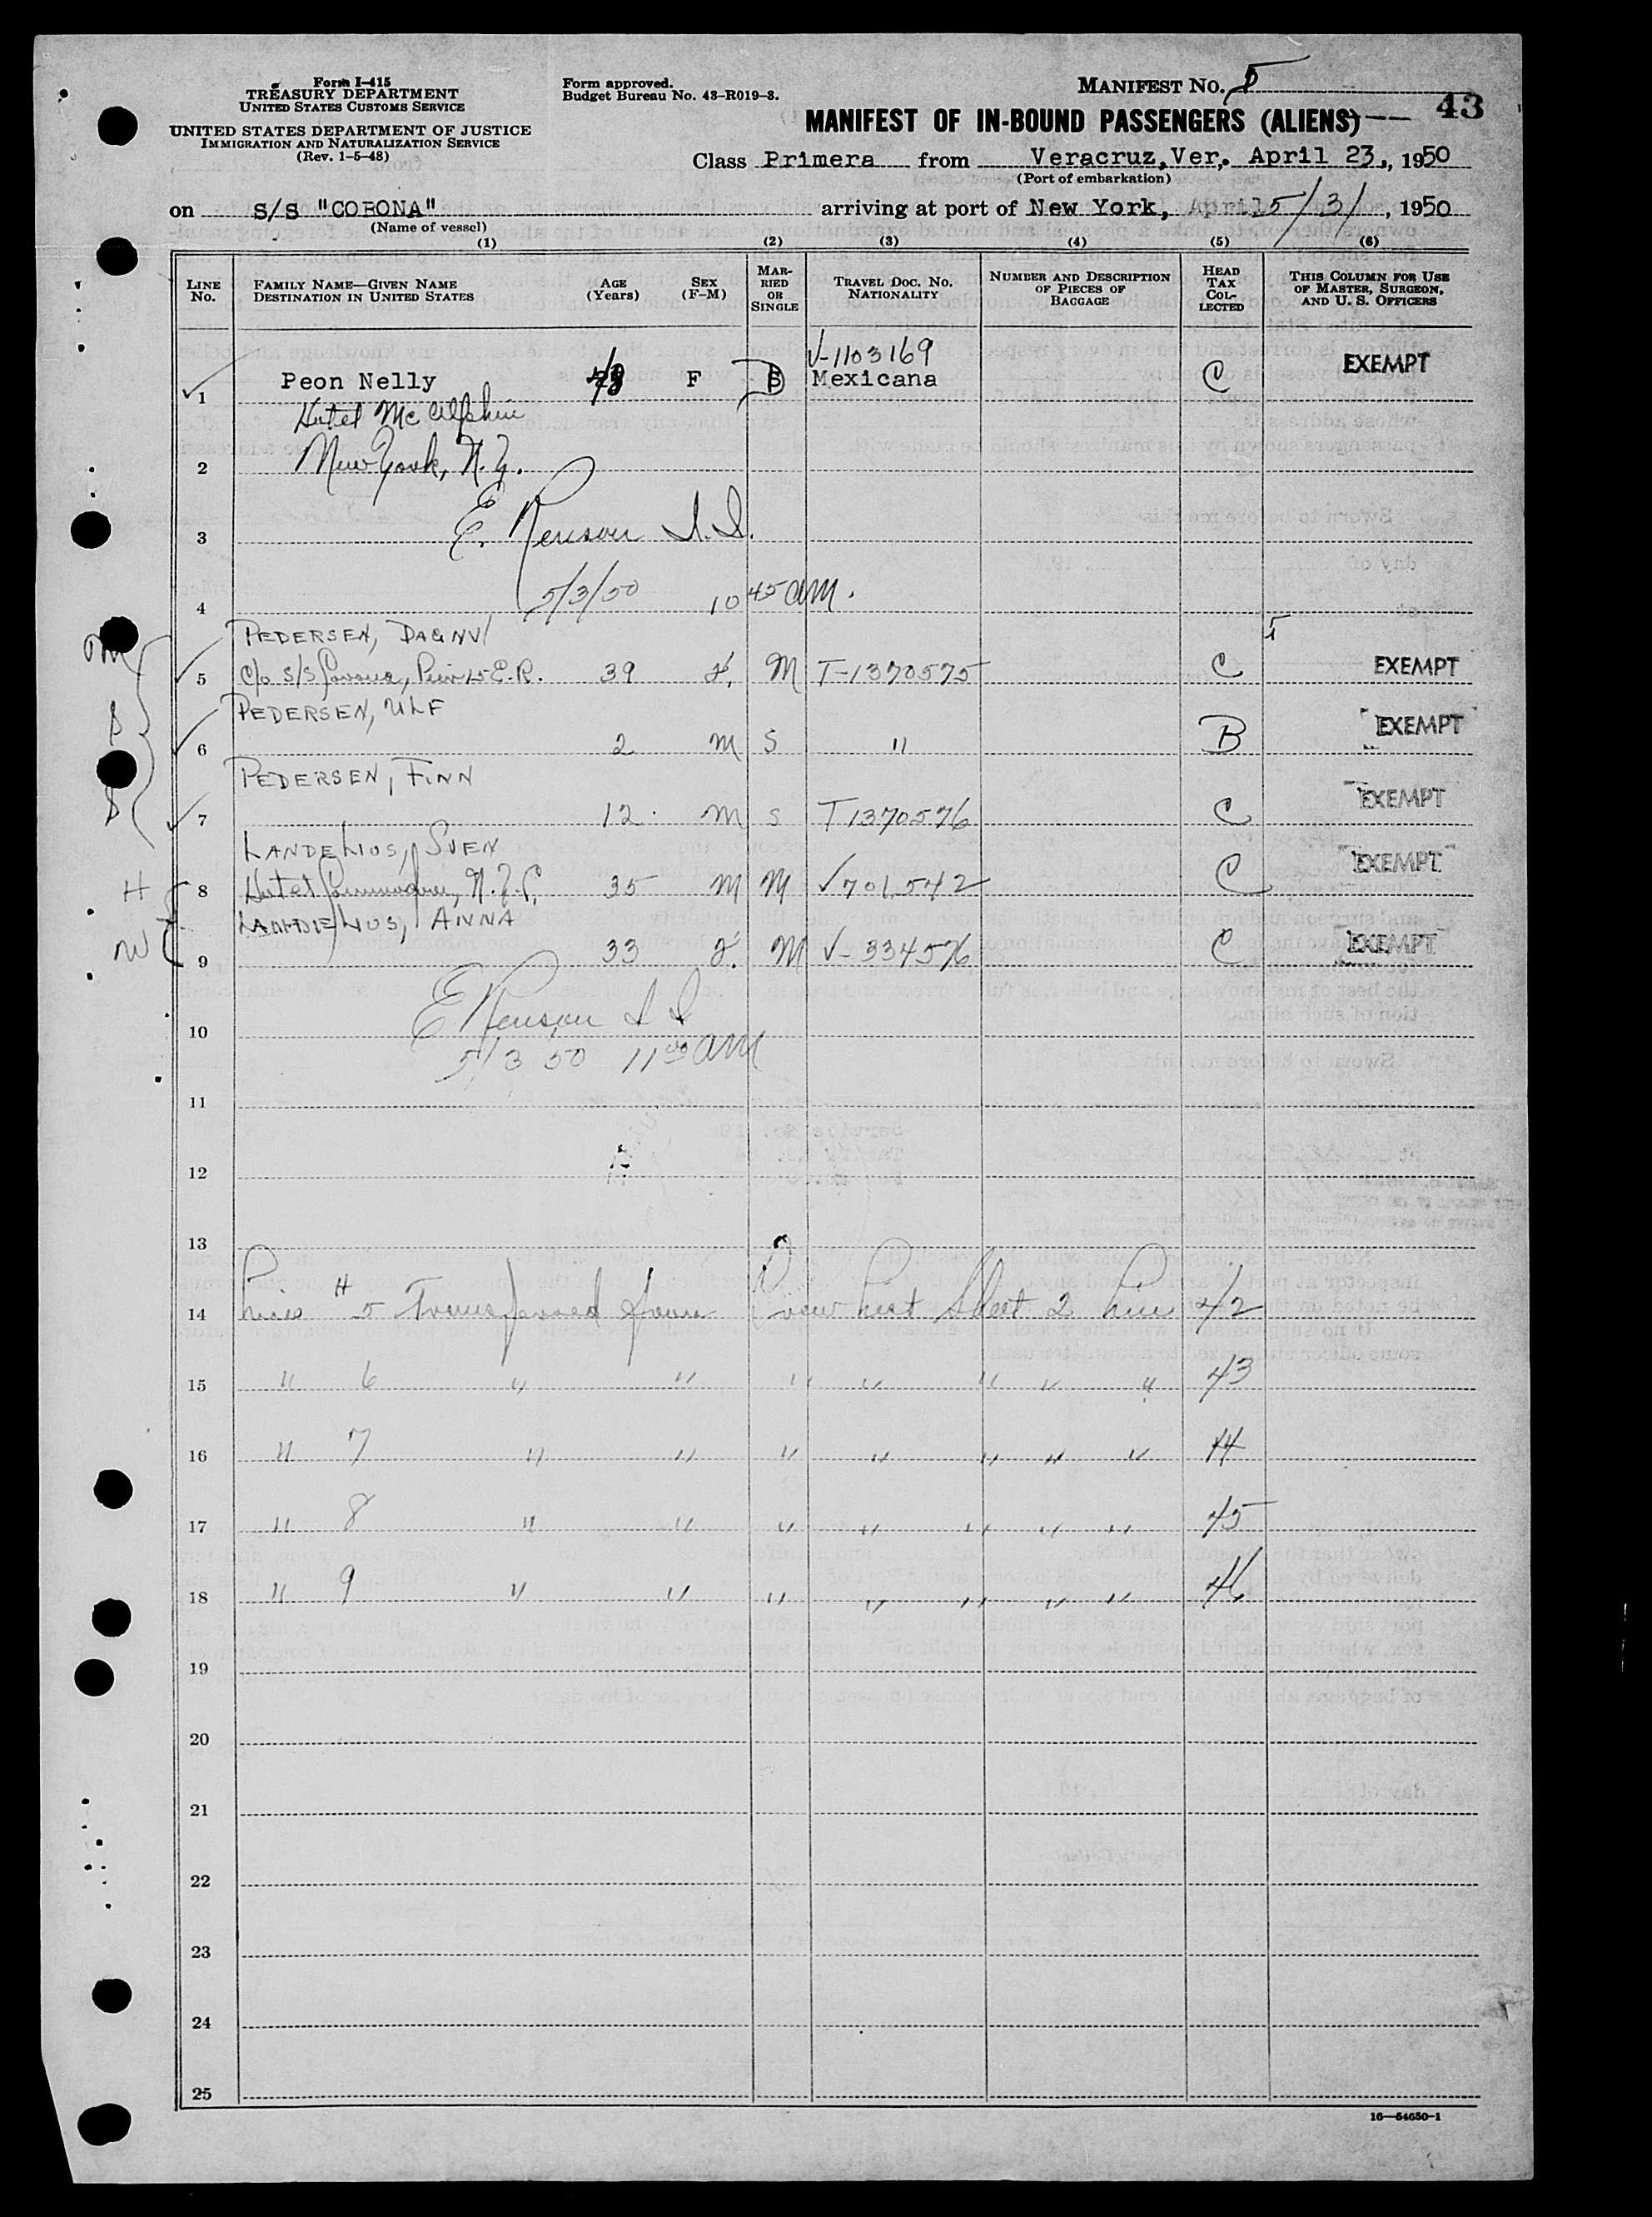 Form I-415
TREASURY DEPARTMENT
UNITED STATES CUSTOMS SERVICE
UNITED STATES DEPARTMENT OF JUSTICE
IMMIGRATION AND NATURALIZATION SERVICE
(Rev. 1-5-48)
Form approved.
Budget Bureau No. 43-R019-3.
MANIFEST NO. 5
43
MANIFEST OF IN-BOUND PASSENGERS (ALIENS)
Class Primera from Veracruz,Ver,. April 23, 1950
(Port of embarkation)
on S/S "CORONA" arriving at port of New York, April 5/3/, 1950
(Name of vessel)
(1) (2) (3) (4) (5) (6)
LINE No.
FAMILY NAME—GIVEN NAME
DESTINATION IN UNITED STATES
AGE (Years)
SEX (F-M)
MARRIED OR SINGLE
TRAVEL DOC. NO. NATIONALITY
NUMBER AND DESCRIPTION OF PIECES OF BAGGAGE
HEAD TAX COLLECTED
THIS COLUMN FOR USE OF MASTER, SURGEON, AND U. S. OFFICERS
V-1103169
1 Peon Nelly F D Mexicana C EXEMPT
Hotel McAlphin
2 New York, N.Y.
3 E. Renson I.I.
4 5/3/50 10 45 AM.
PEDERSEN, DAGNY 5
M 5 C/o S/S Corona, Pier 25 E.R. 39 F. M T-1370575 C EXEMPT
PEDERSEN, ULF
S 6 2 M S " B EXEMPT
PEDERSEN, FINN
S 7 12 M S T1370576 C EXEMPT
LANDELIUS, SVEN
H 8 Hotel Commodore, N.Y.C. 35 M M V701542 C EXEMPT
LANDELIUS, ANNA
W 9 33 F. M V-334576 C EXEMPT
10 E Renson I I
5/3 50 11 00 AM
11
12
13
14 Line # 5 Transferred from Crew List Sheet 2 Line 42
15 " 6 " " " " " " " 43
16 " 7 " " " " " " " 44
17 " 8 " " " " " " " 45
18 " 9 " " " " " " " 46
19
20
21
22
23
24
25
16—54650-1